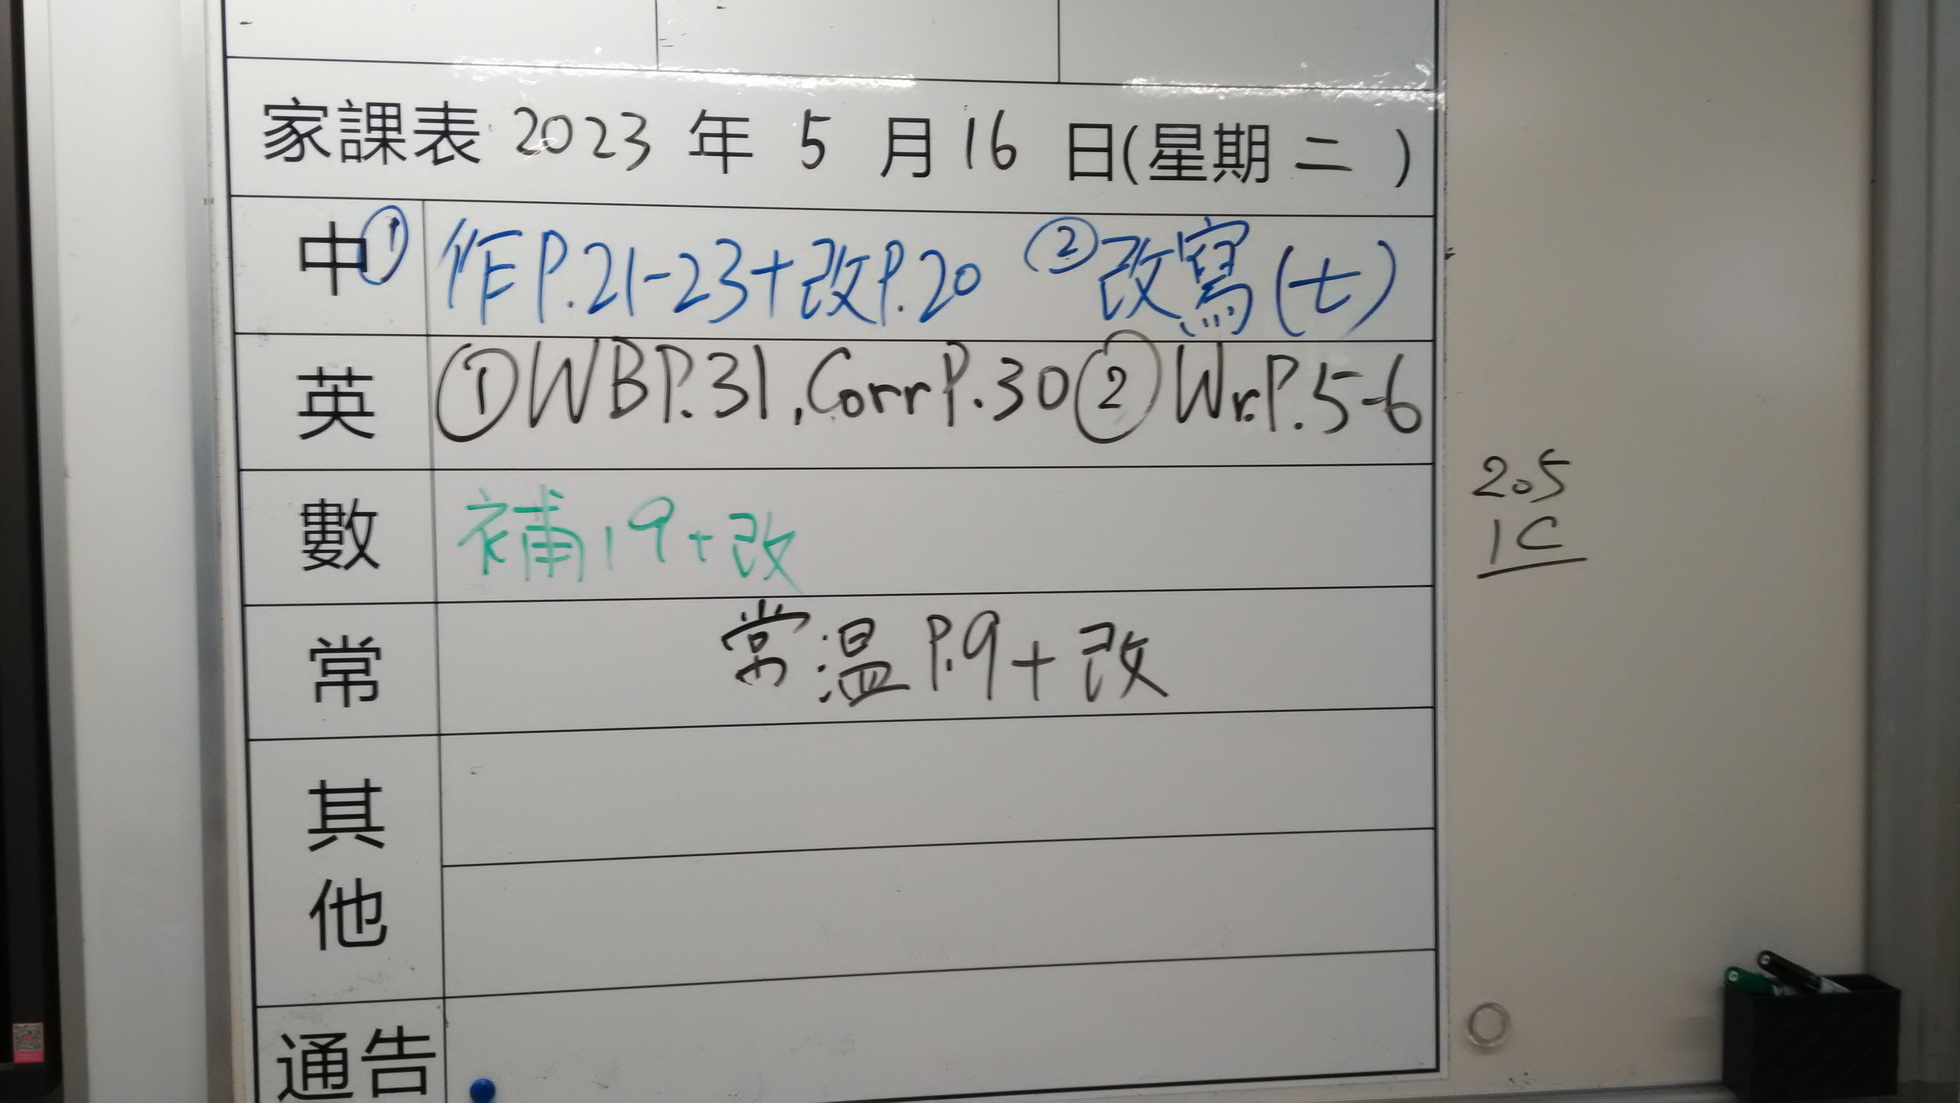 家課表 2023 年 5 月 16 日(星期 二 )
中 ① 作P.21-23+改P.20 ② 改寫(七)
英 ① WBP.31, Corr P.30 ② Wr.P.5-6
數 補19+改
常 常溫P.9+改
其他
通告
205
1C